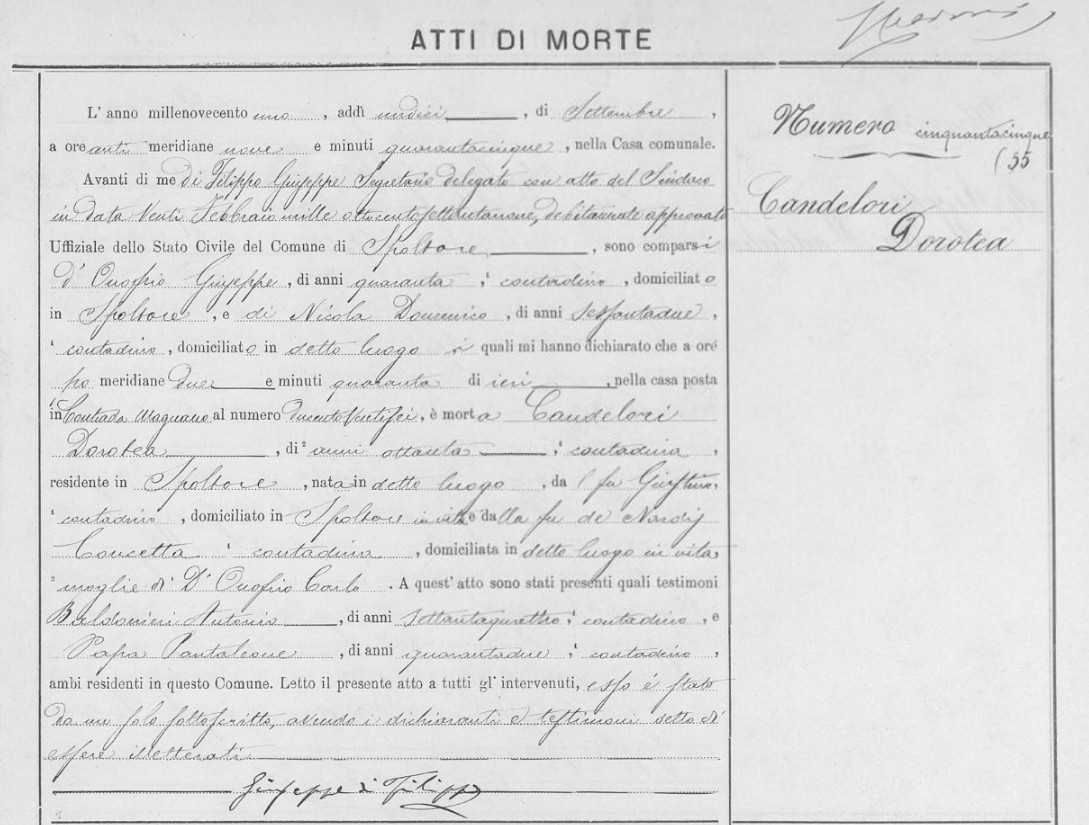 ATTI DI MORTE
L' anno millenovecento uno, addì undici, di Settembre,
a ore anti meridiane nove e minuti quarantacinque, nella Casa comunale.
Avanti di me di Filippo Giuseppe Segretario delegato con atto del Sindaco
in data Venti Febbraio mille ottocento settantanove, debitamente approvato
Uffiziale dello Stato Civile del Comune di Spoltore, sono comparsi
D' Onofrio Giuseppe, di anni quaranta, contadino, domiciliato
in Spoltore, e di Nicola Domenico, di anni sessantadue,
contadino, domiciliato in detto luogo i quali mi hanno dichiarato che a ore
po meridiane due e minuti quaranta di ieri, nella casa posta
in Contrada al numero duecentoventisei, è morta Candelori
Dorotea, di anni ottanta, contadina,
residente in Spoltore, nata in detto luogo, da l fu Giustino,
contadino, domiciliato in Spoltore in vita e dalla fu de Nardij
Concetta contadina, domiciliata in detto luogo in vita
moglie di D' Onofrio Carlo. A quest' atto sono stati presenti quali testimoni
Baldonieri Antonio, di anni settantaquattro, contadino, e
Papa Pantaleone, di anni quarantadue, contadino,
ambi residenti in questo Comune. Letto il presente atto a tutti gl' intervenuti, esso è stato
da me solo sottoscritto, avendo i dichiaranti e testimoni detto di
essere illetterati
Giuseppe di Filippo
Numero cinquantacinque
(55
Candelori
Dorotea